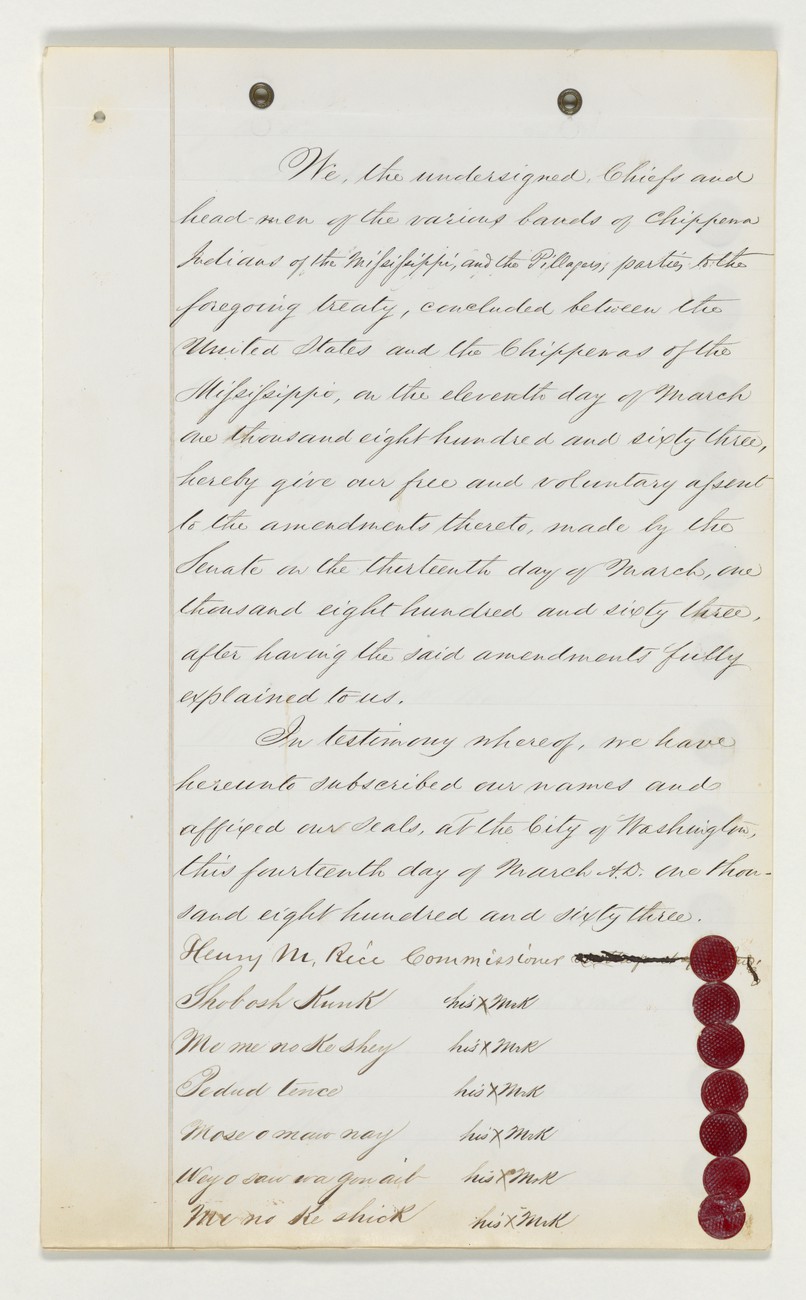 We, the undersigned, Chiefs and
head-men of the various bands of Chippewa
Indians of the Mississippi, and the Pillagers, parties to the
foregoing treaty, concluded between the
United States and the Chippewas of the
Mississippi, on the eleventh day of March
one thousand eight hundred and sixty three,
hereby give our free and voluntary assent
to the amendments thereto, made by the
Senate on the thirteenth day of March, one
thousand eight hundred and sixty three,
after having the said amendments fully
explained to us.
In testimony whereof, we have
hereunto subscribed our names and
affixed our seals, at the City of Washington,
this fourteenth day of March A.D. one thou-
sand eight hundred and sixty three.
Henry M. Rice Commissioner
Shobosh Kunk his X Mrk
Me me no Ke shey his X Mrk
Pedud tence his X Mrk
Mose o maw nay his X Mrk
Wey o saw wa gon aib his X Mrk
Me no Ke shick his X Mrk